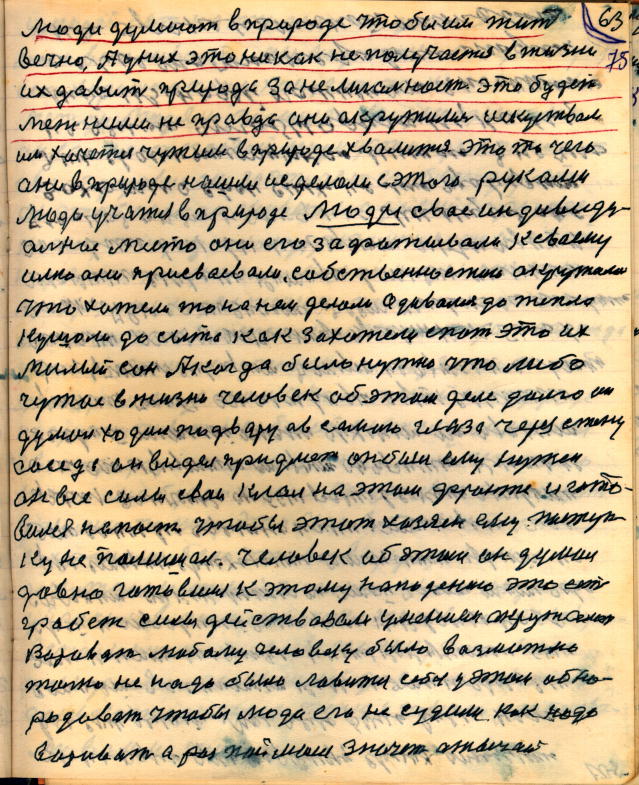 63
Люди думают в природе чтобы им жит
75
вечно, А у них это никак не получается в жизни
их давит природа за нелигалност это будет
меж ними не правда они окружились искуством
им хочется чужим в природе хвалится это то чего
они в природе нашли и сделали с этого руками
Люди учатся в природе Люди свое индивиду-
алное место они его зафратывали к своему
они присваевали, собственностию окружали
что хотели то на нем делали Одивался до тепла
Кушали до сыта как захотели спат это их
милый сон А когда было нужно что либо
чужое в жизни человек об этом деле долго он
думал ходил по двару ав самого глаза через стену
соседа он видел придмет он был ему нужен
он все силы свои клал на этом фронте и гото-
вился напаст чтобы этот хозяен ему поступ-
ку не помишал. Человек об этом он думал
давно готовился к этому нападению это
грабеж силы действовали умением окружали
Вароват любому человеку было возможно
толко не надо было ловится себя у этом обна-
родоват чтобы люди его не судили как надо
Вароват а раз поймали значит отвечай